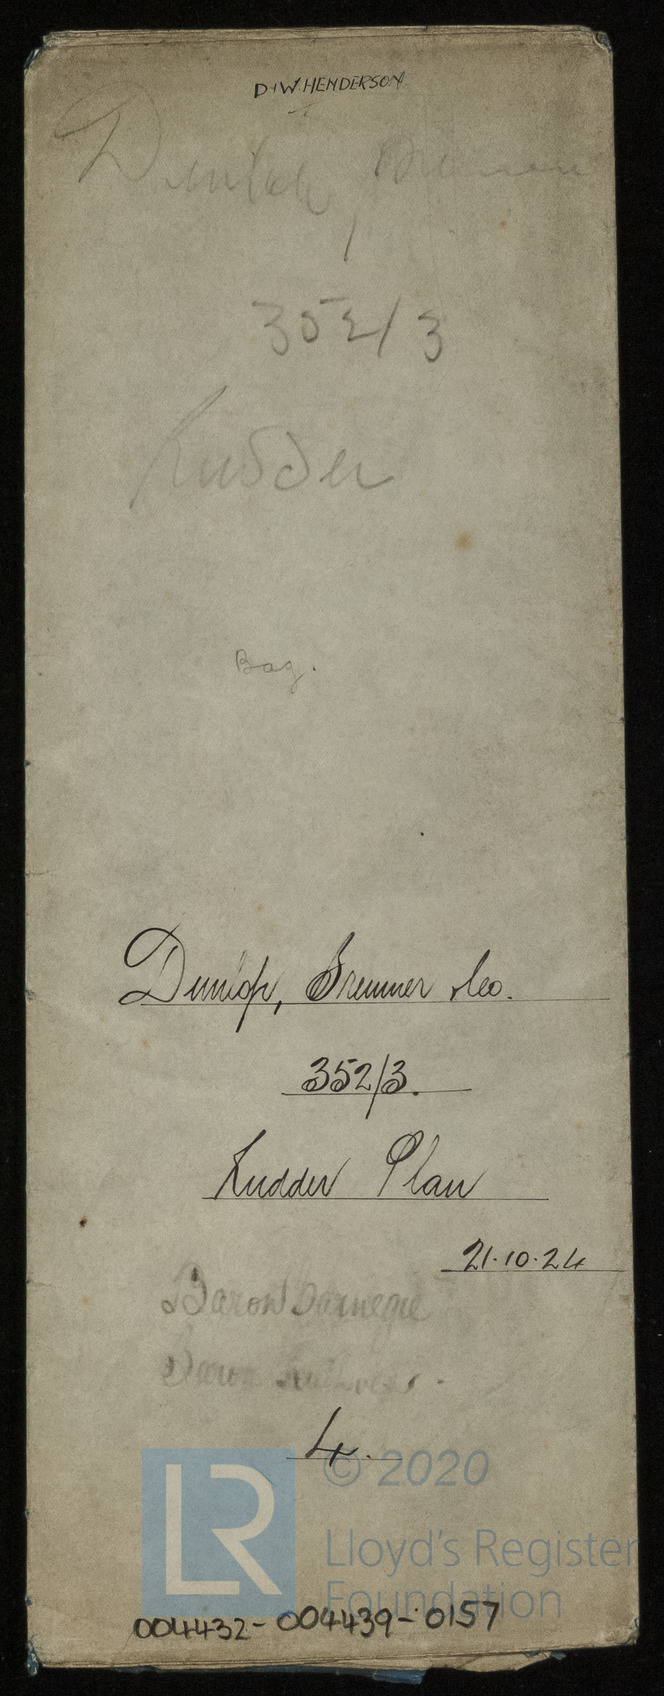 D.W. HENDERSON
Dunlop, Bremner
352/3
Rudder
Bag.
Dunlop, Bremner & Co.
352/3.
Rudder Plan
21.10.24
Baron Carnegie
Baron
4.
LR © 2020
Lloyd's Register
Foundation
004432-004439-0157